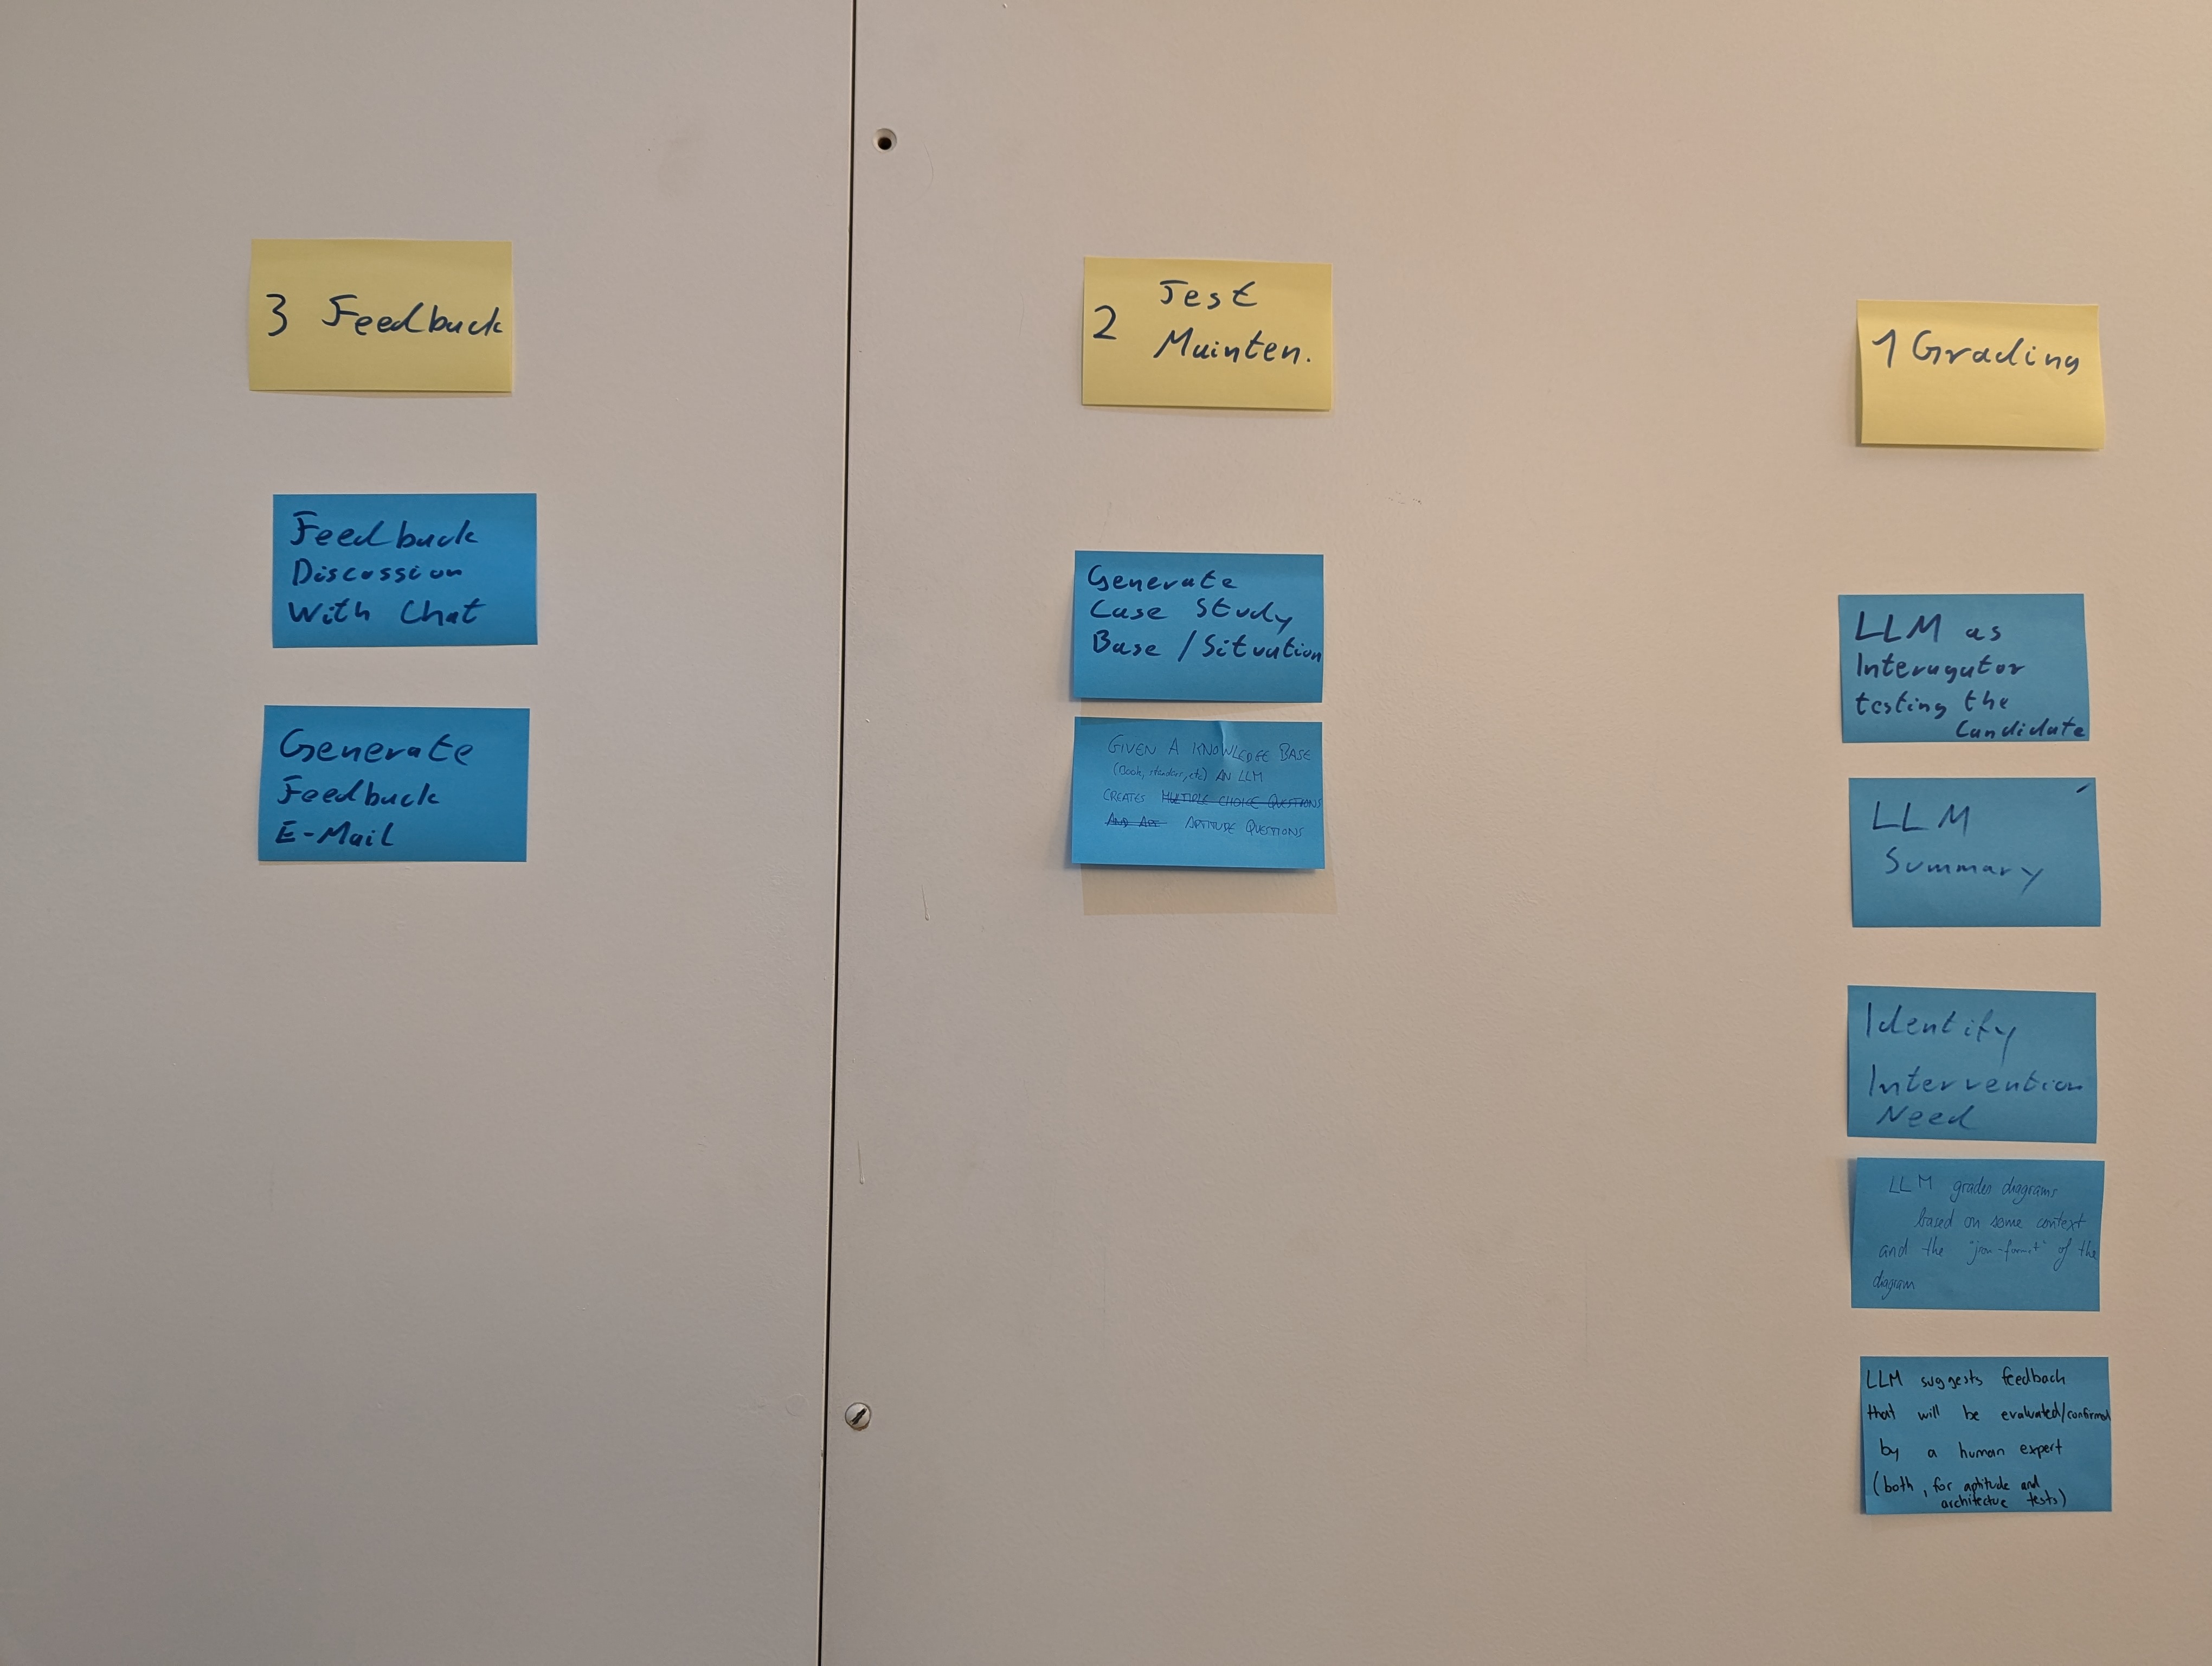 3 Feedback
Feedback
Discussion
With Chat
Generate
Feedback
E-Mail
2 Test
Mainten.
Generate
Case Study
Base / Situation
GIVEN A KNOWLEDGE BASE
(Book, etc) AN LLM
CREATES MULTIPLE CHOICE QUESTIONS
AND APT APTITUDE QUESTIONS
1 Grading
LLM as
Interugutor
testing the
Candidate
LLM
Summary
Identify
Intervention
Need
LLM grades diagrams
based on some context
and the "json-format" of the
diagram
LLM suggests feedback
that will be evaluated/confirmed
by a human expert
(both, for aptitude and
architectue tests)